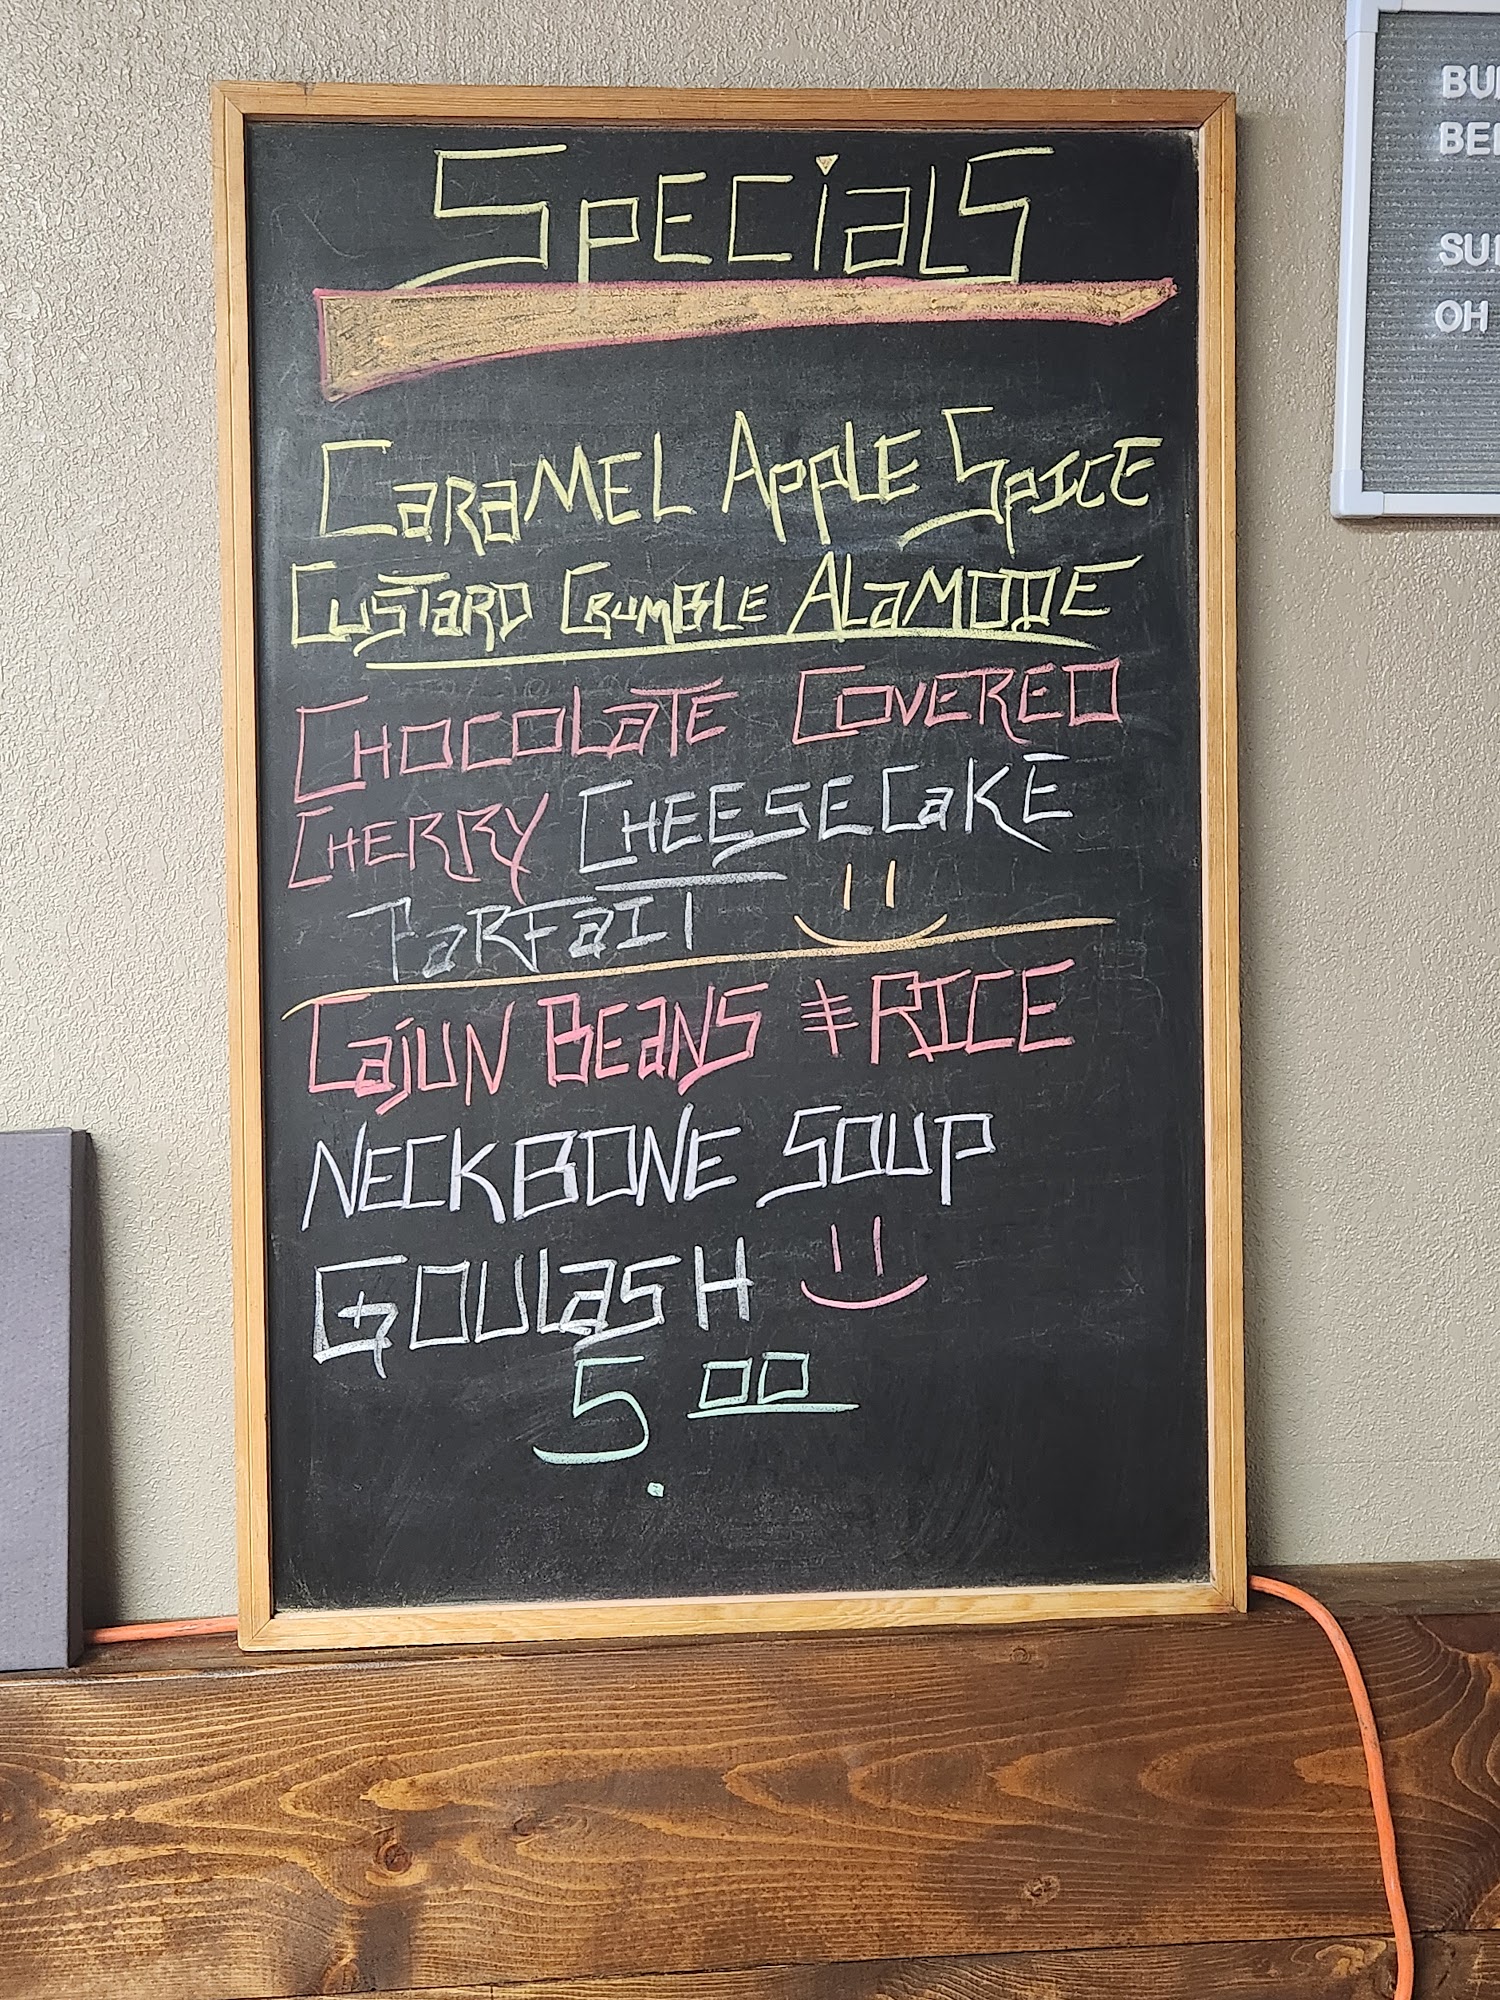 Specials
Caramel Apple Spice
Custard Crumble Alamode
Chocolate Covered
Cherry Cheesecake
Parfait
Cajun Beans & Rice
Neckbone Soup
Goulash
5.00
SU
OH